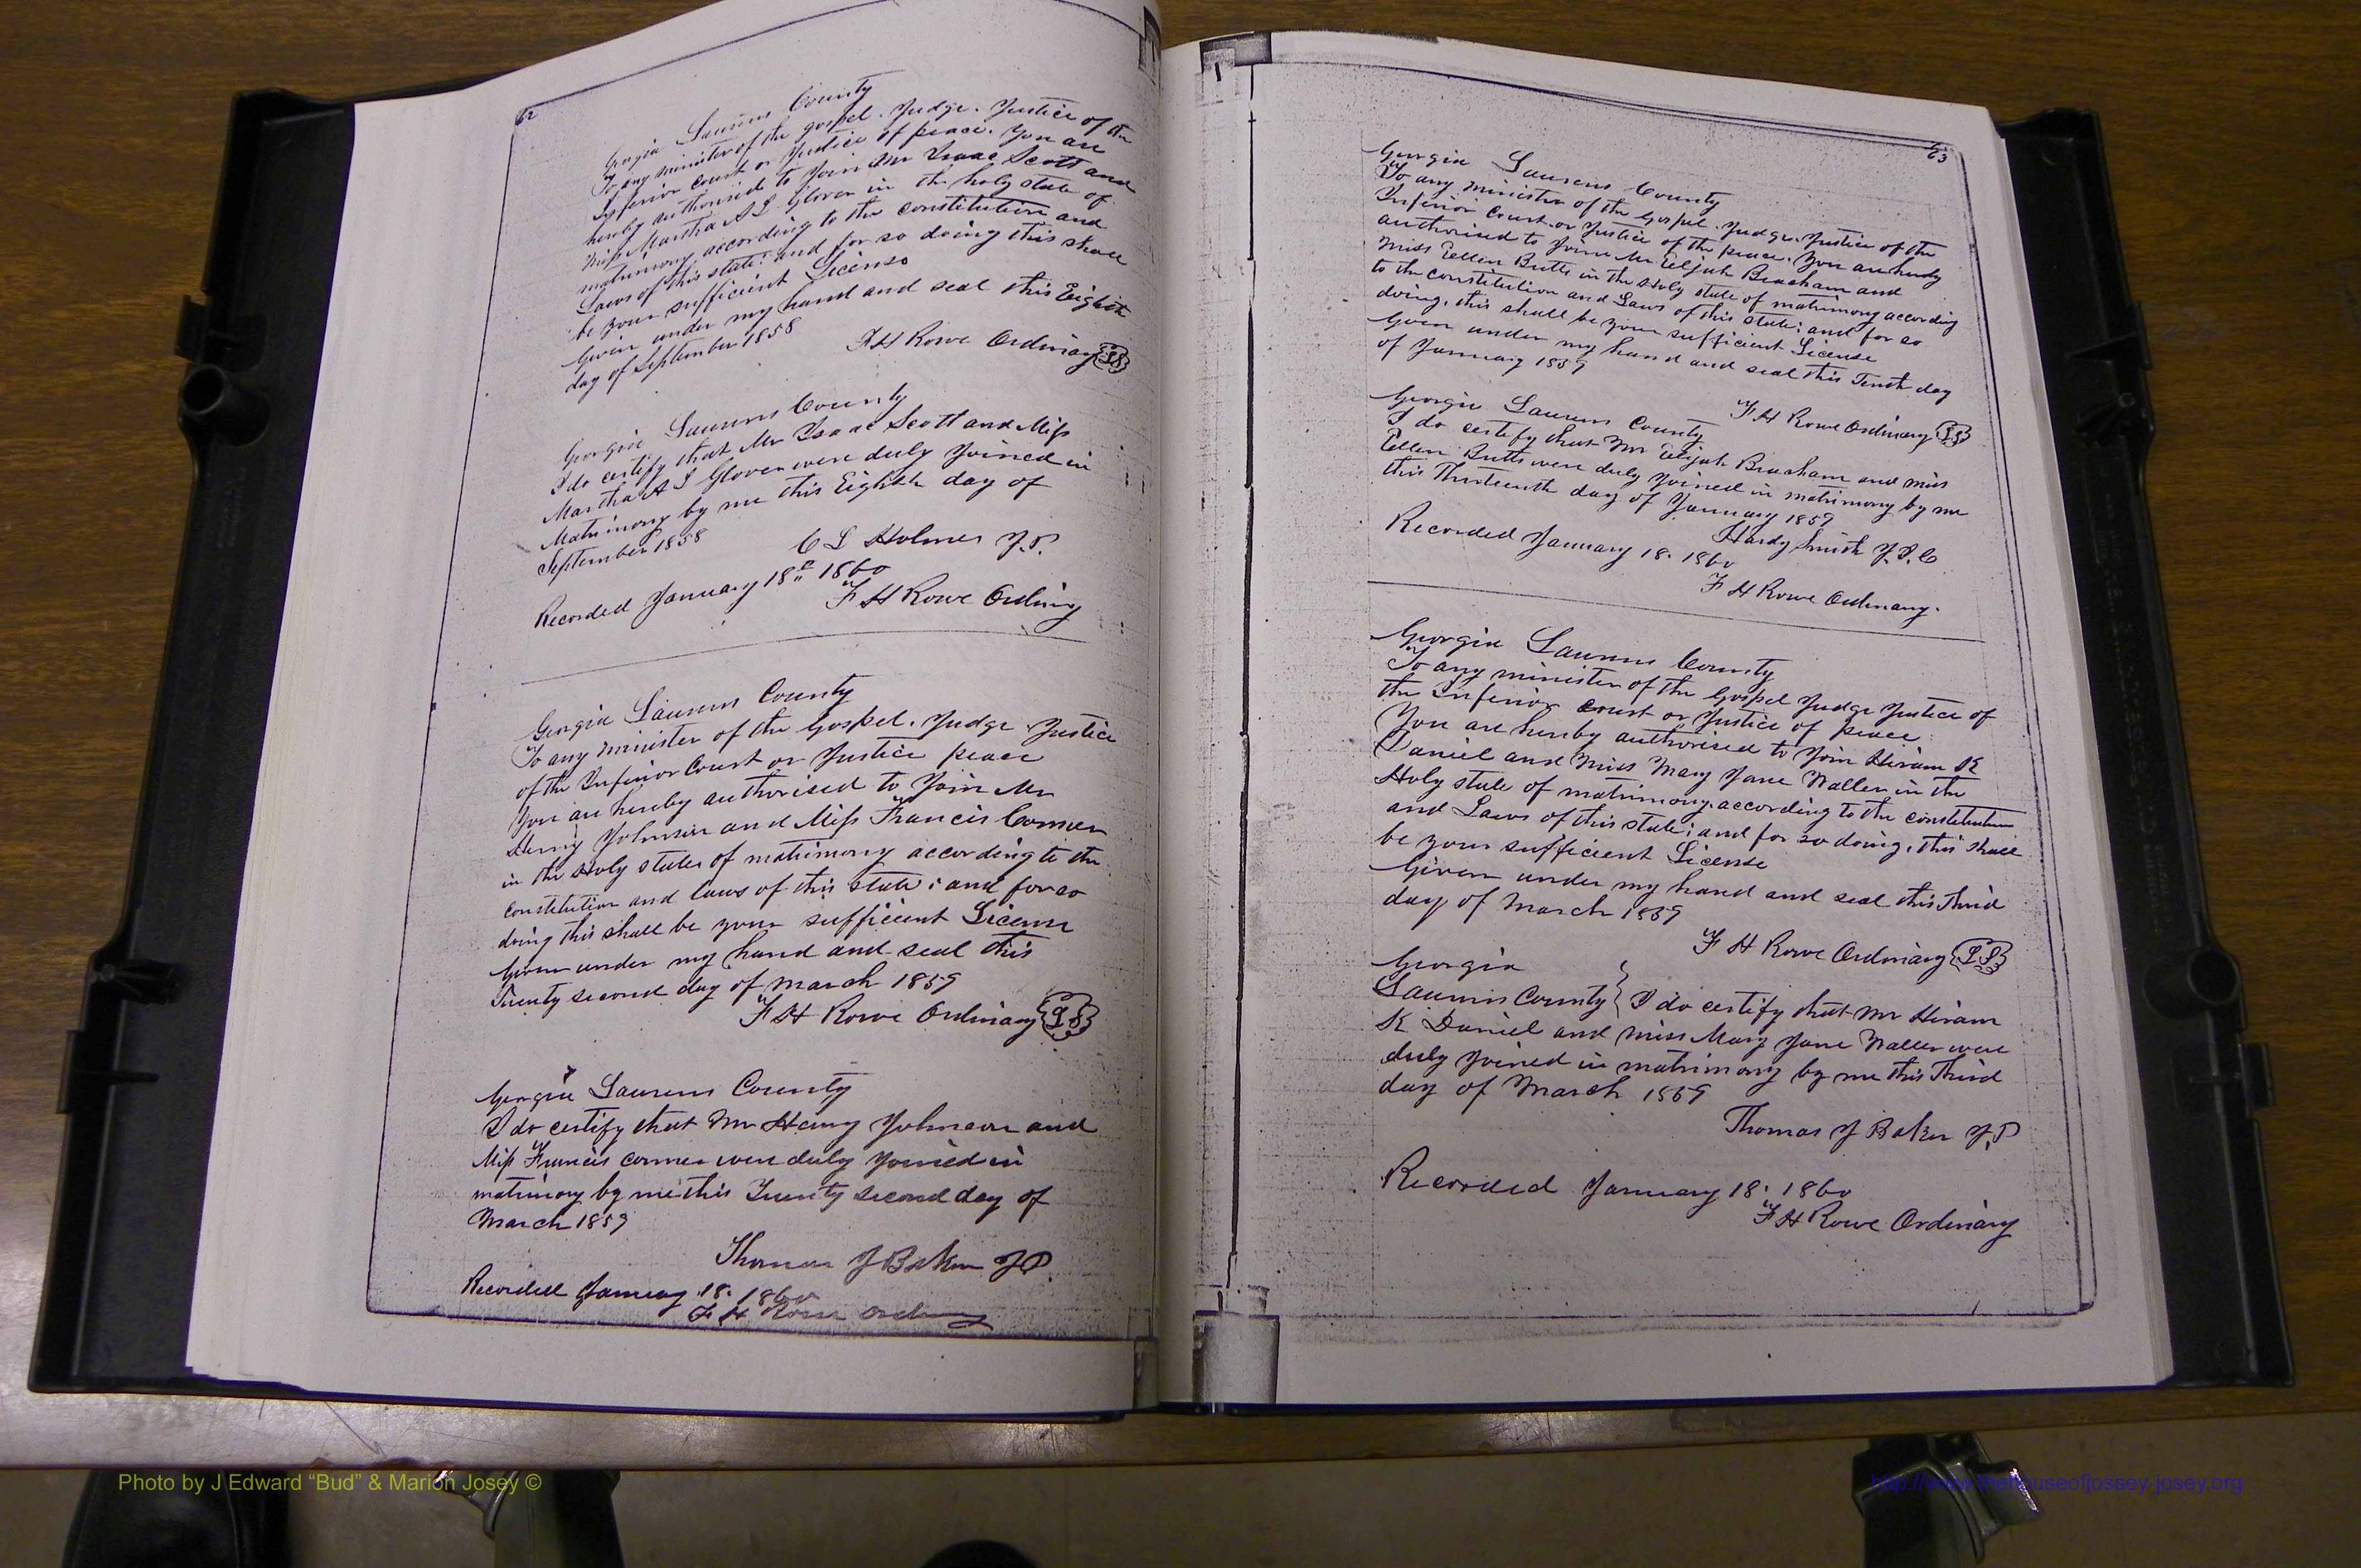 62
Georgia Laurens County
To any minister of the gospel. Judge. Justice of the
Inferior Court or Justice of peace. You are
hereby authorised to Join Mr Isaac Scott and
Miss Martha A L Glover in the holy state of
matrimony according to the constitution and
Laws of this state: and for so doing this shall
be your sufficient License
Given under my hand and seal this Eighth
day of September 1858
F H Rowe Ordinary LS
Georgia Laurens County
I do certify that Mr Isaac Scott and Miss
Martha A L Glover were duly Joined in
Matrimony by me this Eighth day of
September 1858
C L Holmes J.P.
Recorded January 18th 1860
F H Rowe Ordinry
Georgia Laurens County
To any minister of the Gospel. Judge Justice
of the Inferior Court or Justice peace
You are hereby authorised to Join Mr
Henry Johnson and Miss Francis Comer
in the Holy states of matrimony according to the
constitution and laws of this state: and for so
doing this shall be your sufficient License
Given under my hand and seal this
Twenty second day of March 1859
F H Rowe Ordinary LS
Georgia Laurens County
I do certify that Mr Henry Johnson and
Miss Francis Comer were duly Joined in
matrimony by me this Twenty second day of
March 1859
Thomas J Baker JP
Recorded January 18. 1860
F H Rowe Ordinary
63
Georgia Laurens County
To any minister of the Gospel. Judge. Justice of the
Inferior Court or Justice of the peace. You are hereby
authorised to Joine Mr Elijah Beacham and
Miss Ellen Butts in the Holy state of matrimony according
to the constitution and Laws of this state; and for so
doing, this shall be your sufficient License
Given under my hand and seal this Tenth day
of January 1859
F H Rowe Ordinary LS
Georgia Laurens County
I do certify that Mr Elijah Beacham and miss
Ellen Butts were duly Joined in matrimony by me
this Thirteenth day of January 1859
Hardy Smith J.I.C
Recorded January 18. 1860
F H Rowe Ordinary.
Georgia Laurens County
To any minister of the Gospel Judge Justice of
the Inferior Court or Justice of peace
You are hereby authorised to Join Hiram K
Daniel and Miss Mary Jane Waller in the
Holy state of matrimony. according to the constitution
and Laws of this state; and for so doing, this shall
be your sufficient License
Given under my hand and seal this Third
day of March 1859
F H Rowe Ordinary LS
Georgia
Laurens County } I do certify that Mr Hiram
K Daniel and miss Mary Jane Waller were
duly Joined in matrimony by me this Third
day of March 1859
Thomas J Baker JP
Recorded January 18. 1860
F H Rowe Ordinary
Photo by J Edward “Bud” & Marion Josey ©
http://www.thehouseofjossey-josey.org